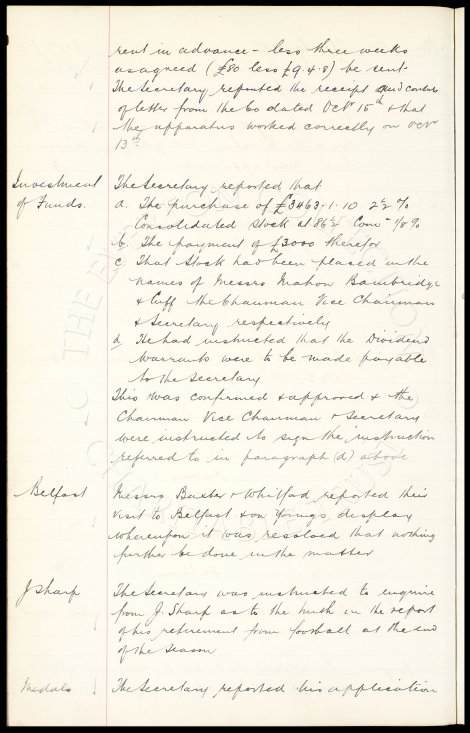 rent in advance - less three weeks
as agreed (£80 less £9.4.8) be sent -
The Secretary reported the receipt and contents
of letter from the Co dated Octr 15th & that
the apparatus worked correctly on Octr
13th.
Investment of Funds.
The Secretary reported that
a. The purchase of £3463.1.10 2½ %
Consolidated Stock at 86½ Comn 1/8 %
b. The payment of £3000 therefor
c. That Stock had been placed in the
names of Messrs Mahon Bambridge
& Cuff the Chairman Vice Chairman
& Secretary respectively
d. He had instructed that the Dividend
Warrants were to be made payable
to the Secretary
This was confirmed & approved & the
Chairman Vice Chairman & Secretary
were instructed to sign the instruction
referred to in paragraph (d) above
Belfast
Messrs Baxter & Whitford reported their
visit to Belfast & on Young's display
whereupon it was resolved that nothing
further be done in the matter
J Sharp
The Secretary was instructed to inquire
from J. Sharp as to the truth in the report
of his retirement from football at the end
of the season
Medals
The Secretary reported his application